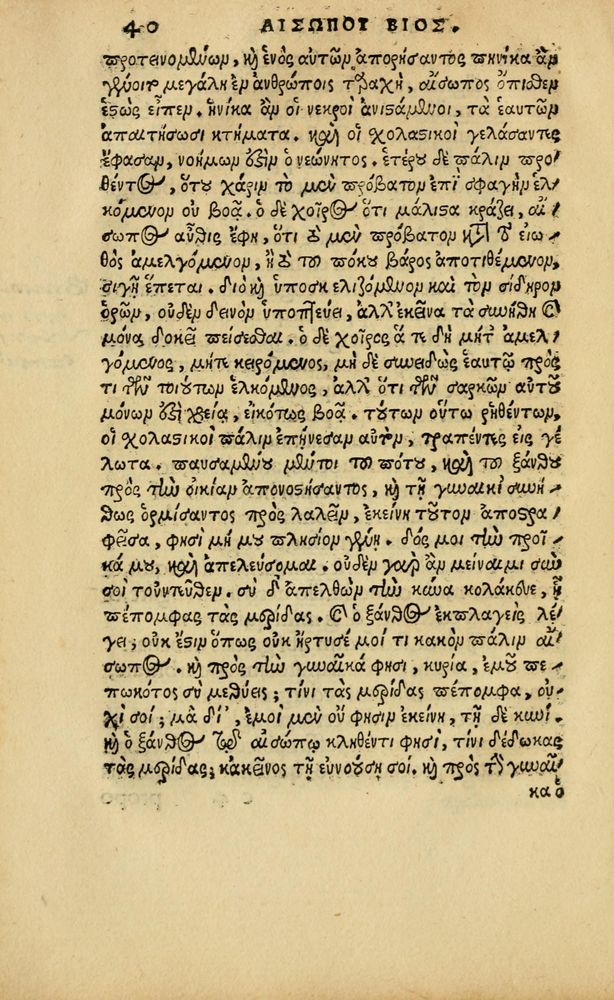 40 ΑΙΣΩΠΟΥ ΒΙΟΣ.
προτεινομένων, καὶ ἑνὸς αὐτῶν ἀπορήσαντος πηνίκα ἂν
γένοιτο μεγάλη ἐν ἀνθρώποις ταραχὴ, αἴσωπος ὄπισθεν
ἑστὼς εἶπεν. ἡνίκα ἂν οἱ νεκροὶ ἀνιστάμενοι, τὰ ἑαυτῶν
ἀπαιτήσωσι κτήματα. καὶ οἱ σχολαστικοὶ γελάσαντες
ἔφασαν, νοήμων ἐστὶν ὁ νεώνητος. ἑτέρου δὲ πάλιν προ/
θέντος, ὅτου χάριν τὸ μὲν πρόβατον ἐπὶ σφαγὴν ἑλ/
κόμενον οὐ βοᾷ. ὁ δὲ χοῖρος ὅτι μάλιστα κράζει, αἴ/
σωπος αὖθις ἔφη, ὅτι τὸ μὲν πρόβατον κατὰ τὸ εἰω/
θὸς ἀμελγόμενον, ἢ τὸ τοῦ πόκου βάρος ἀποτιθέμενον,
σιγῇ ἕπεται. διὸ καὶ ὑποσκελιζόμενον καὶ τὸν σίδηρον
ὁρῶν, οὐδὲν δεινὸν ὑποπτεύει, ἀλλ' ἐκεῖνα τὰ συνήθη καὶ
μόνα δοκεῖ πείσεσθαι. ὁ δὲ χοῖρος ἅ τε δὴ μήτ' ἀμελ/
γόμενος, μήτε κειρόμενος, μὴ δὲ συνειδὼς ἑαυτῷ πρός
τι τῶν τοιούτων ἑλκόμενος, ἀλλ' ὅτι τῶν σαρκῶν αὐτοῦ
μόνων ἐστὶ χρεία, εἰκότως βοᾷ. τούτων οὕτω ῥηθέντων,
οἱ σχολαστικοὶ πάλιν ἐπῄνεσαν αὐτὸν, τραπέντες εἰς γέ/
λωτα. παυσαμένου μέντοι τοῦ πότου, καὶ τοῦ ξάνθου
πρὸς τὴν οἰκίαν ἀπονοστήσαντος, καὶ τῇ γυναικὶ συνή/
θως ὁρμίσαντος πρὸς λαλεῖν, ἐκείνη τοῦτον ἀποστρα/
φεῖσα, φησὶ μή μου πλησίον γένῃ. δός μοι τὴν προῖ/
κά μου, καὶ ἀπελεύσομαι. οὐδὲν γὰρ ἂν μείναιμι σὺν
σοὶ τουντεῦθεν. σὺ δ' ἀπελθὼν τὴν κύνα κολάκευε, ᾗ
πέπομφας τὰς μερίδας. καὶ ὁ ξάνθος ἐκπλαγεὶς λέ/
γει; οὐκ ἔστιν ὅπως οὐκ ἤρτυσέ μοί τι κακὸν πάλιν αἴ/
σωπος. καὶ πρὸς τὴν γυναῖκά φησι, κυρία, ἐμοῦ πε/
πωκότος σὺ μεθύεις; τίνι τὰς μερίδας πέπομφα, οὐ/
χὶ σοί; μὰ δί', ἐμοὶ μὲν οὔ φησιν ἐκείνη, τῇ δὲ κυνί.
καὶ ὁ ξάνθος τῷ αἰσώπῳ κληθέντι φησὶ, τίνι δέδωκας
τὰς μερίδας; κἀκεῖνος τῇ εὐνούσῃ σοι. καὶ πρὸς τὴν γυναῖ/
κα ὁ